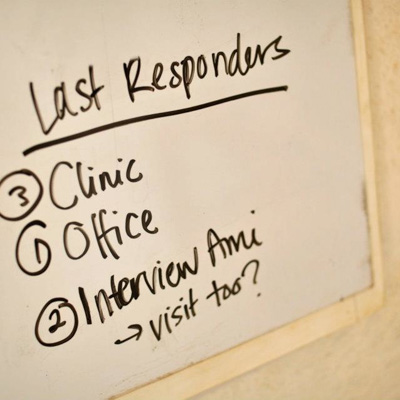 Last Responders
③ Clinic
① Office
② Interview Ami
→ visit too?